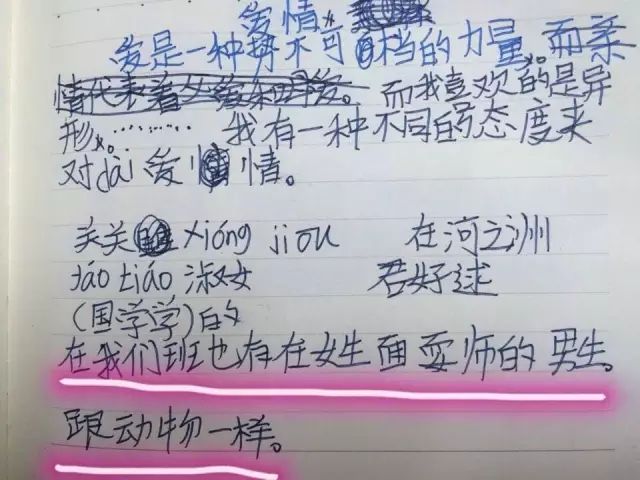 爱情。
爱是一种势不可档的力量。而亲
情代表着父爱和母爱。而我喜欢的是异
形。………我有一种不同的态度来
对dài爱情。
关关xióng jiou 在河之洲
táo tiáo淑女 君好逑
(国学学)的
在我们班也存在女生面耍师的男生。
跟动物一样。